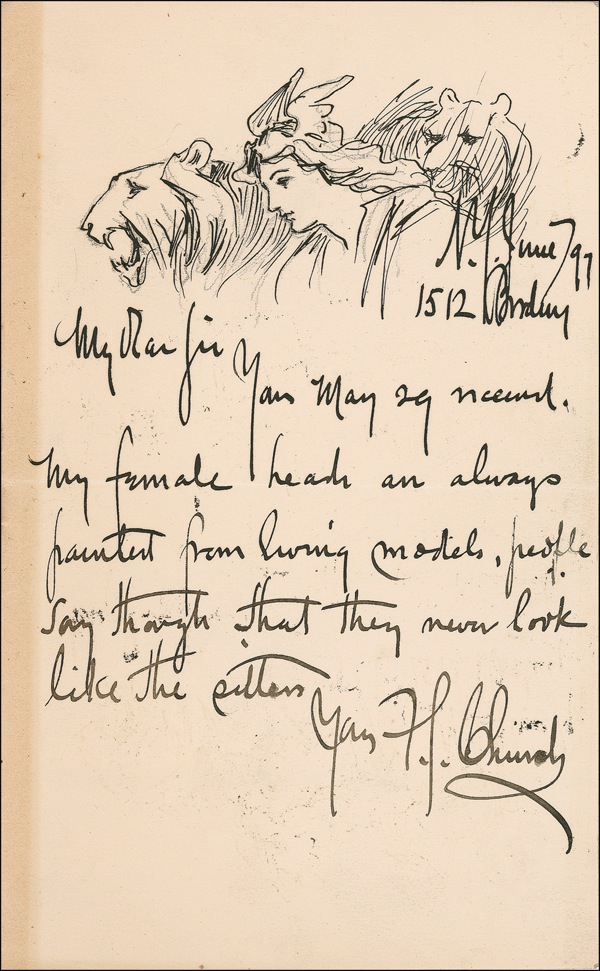 N.Y. June 7 97
1512 Brodway
My Dear Sir
Yours May 29 received.
My female heads are always
painted from living models, people
say though that they never look
like the sitters
Yours F.S. Church